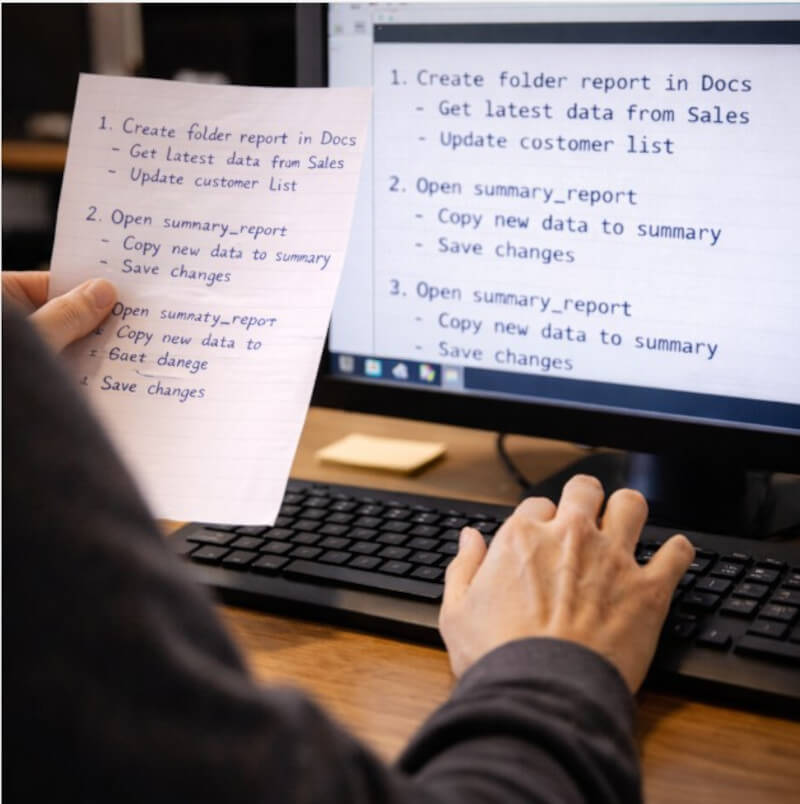 1. Create folder report in Docs
- Get Latest data from Sales
- Update customer List
2. Open summary_report
- Copy new data to summary
- Save changes
Open summaty_repor
Copy new data to
Gaet danege
Save changes
1. Create folder report in Docs
- Get latest data from Sales
- Update costomer list
2. Open summary_report
- Copy new data to summary
- Save changes
3. Open summary_report
- Copy new data to summary
- Save changes